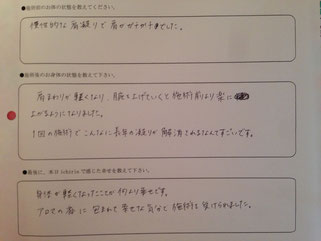 ●施術前のお体の状態を教えてください。
慢性的な肩凝りで肩がガチガチでした。
●施術後のお身体の状態を教えて下さい。
肩まわりが軽くなり、腕を上げていくと施術前より楽に
上がるようになりました。
1回の施術でこんなに長年の凝りが解消されるなんてすごいです。
●最後に、本日 ichiria で感じた幸せを教えて下さい。
身体が軽くなったことが何より幸せです。
アロマの香に包まれて幸せな気分で施術を受けられました。